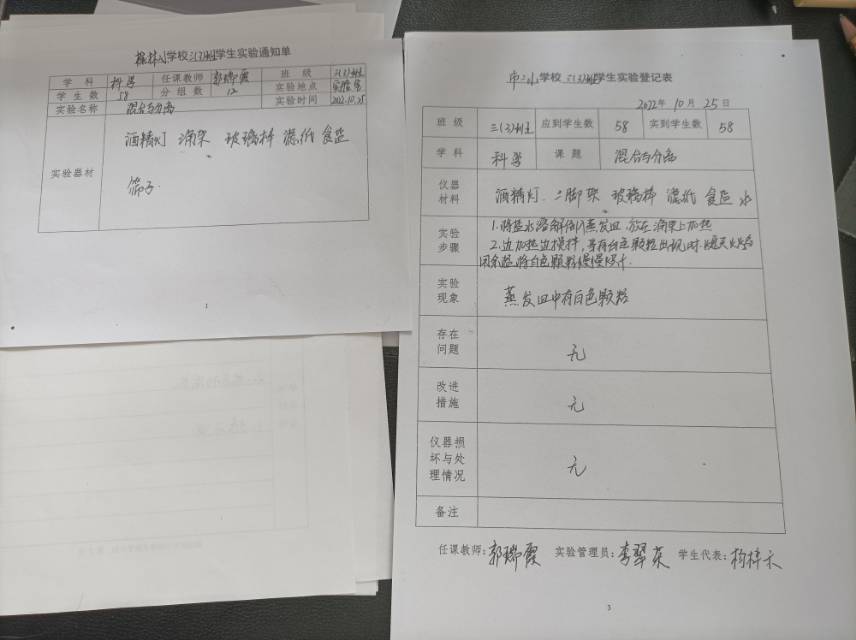 小学校三(3)班学生实验通知单
学科 科学 任课教师 郭瑞霞 班级 三(3)班
学生数 58 分组数 12 实验地点 实验室
实验名称 混合与分离 实验时间 2022.10.25
实验器材
酒精灯 玻璃棒 滤纸 食盐
筛子
1
市二小学校三(3)班学生实验登记表
2022年10月25日
班级 三(3)班 应到学生数 58 实到学生数 58
学科 科学 课题 混合与分离
仪器材料 酒精灯 三脚架 玻璃棒 滤纸 食盐 水
实验步骤
1.将盐水溶解倒入蒸发皿,放在上加热
2.边加热边搅拌,等有白色颗粒出现时,熄灭火焰
用余热将白色颗粒慢慢烘干.
实验现象 蒸发皿中有白色颗粒
存在问题 无
改进措施 无
仪器损坏与处理情况 无
备注
任课教师:郭瑞霞 实验管理员:李翠英 学生代表:
3